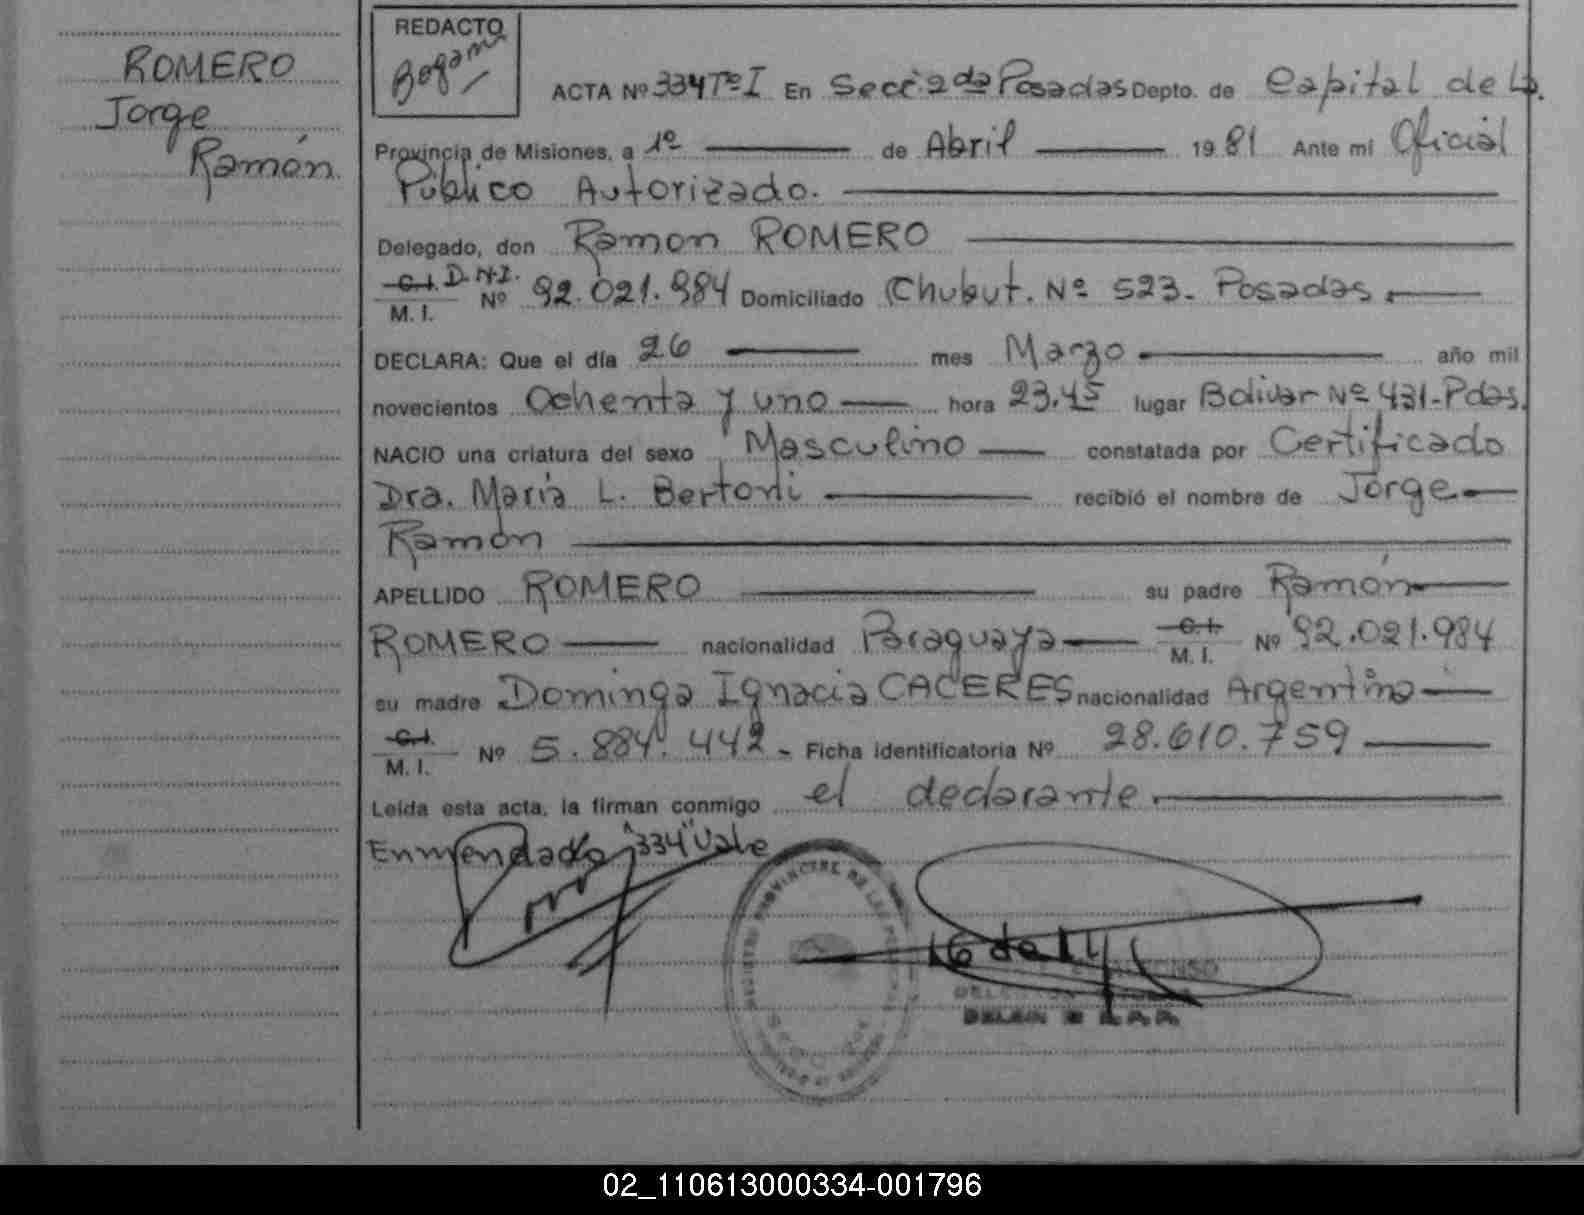 ROMERO
Jorge
Ramón.
REDACTO
ACTA Nº 334 Tº I En Secc. 2da Posadas Depto. de Capital de la
Provincia de Misiones, a 1º de Abril 1981 Ante mi Oficial
Público Autorizado.
Delegado, don Ramon ROMERO
C.I. D.N.I.
M. I. Nº 92.021.984 Domiciliado Chubut. Nº 523. Posadas.
DECLARA: Que el día 26 mes Marzo año mil
novecientos Ochenta y uno hora 23,45 lugar Bolivar Nº 431-Pdas.
NACIO una criatura del sexo Masculino constatada por Certificado
Dra. María L. Bertoni recibió el nombre de Jorge
Ramón
APELLIDO ROMERO su padre Ramón
ROMERO nacionalidad Paraguaya C.I. M. I. Nº 92.021.984
su madre Dominga Ignacia CACERES nacionalidad Argentina
C.I. M. I. Nº 5.884.442 - Ficha identificatoria Nº 28.610.759
Leída esta acta, la firman conmigo el declarante.
Enmendado "334" Vale
REGISTRO PROVINCIAL DE LAS PERSONAS
02_110613000334-001796